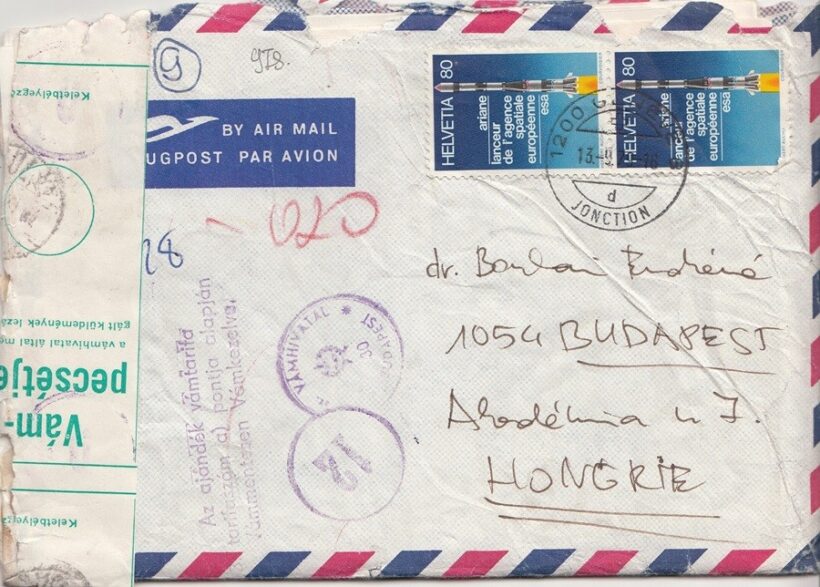 9
978.
BY AIR MAIL
UGPOST PAR AVION
HELVETIA 80
ariane
lanceur
de l'agence
spatiale
européenne
esa
HELVETIA 80
ariane
lanceur
de l'agence
spatiale
européenne
esa
1200
13.-9
d
JONCTION
020
28
dr.
1054 BUDAPEST
Akadémia u 7.
HONGRIE
Az ajándék vámtarifa
tarifaszám a) pontja alapján
Vámmentesen Vámkezelve.
VÁMHIVATAL *
30
12
Keletbélyegző
Vám-
pecsétje
a vámhivatal által
gált küldemények
Keletbélyegző